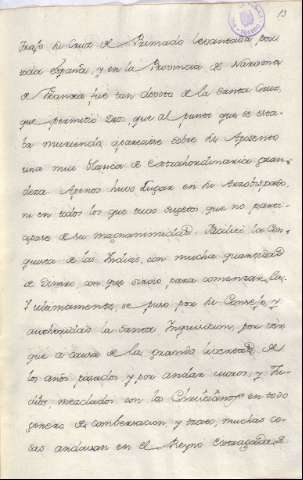 13
trajo su Cruz de Primado levantada por
toda España, y en la Provincia de Narbona
de Francia, fue tan devoto de la Santa Cruz,
que permitió Dios, que al punto que se esta-
ba muriendo, apareciese sobre su Aposento
una muy blanca de extrahordinaria gran-
deza Apenas huvo Lugar en su Arzobispado,
ni en todos los que tuvo sujetos, que no parti-
cipase de su magnanimidad. Facilitó la Con-
quista de las Indias, con mucha quantidad
de dinero, con que sirvió para comenzarlas.
Y ultimamente, se puso por su Consejo, y
authoridad la Santa Inquisicion, por ver
que a causa de las grandes licencias, de
los años pasados, y por andar moros, y Ju-
dios, mezclados con los Christianos en todo
genero de combersacion, y trato, muchas co-
sas andavan en el Reyno estragadas